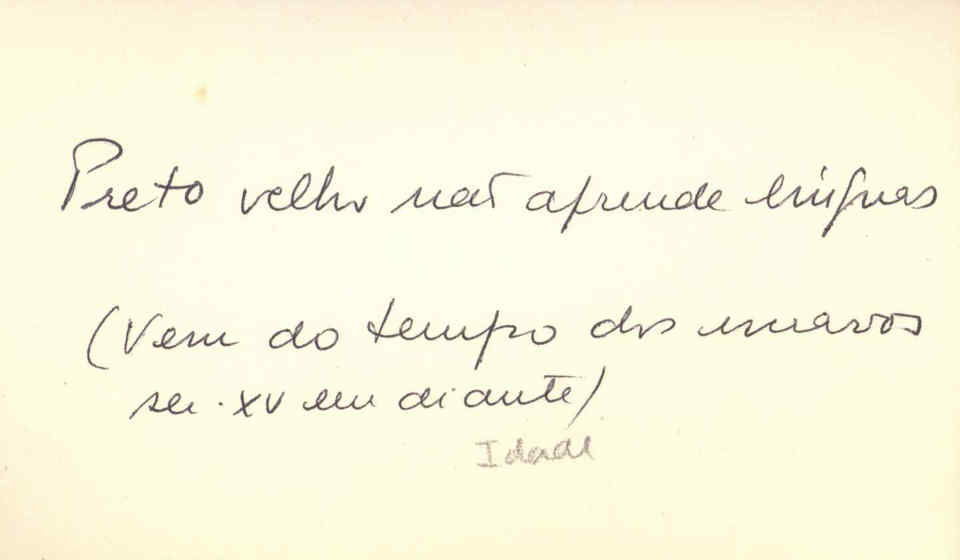 Preto velho não aprende línguas
(Vem do tempo dos escravos
sec. XV em diante)
Idade